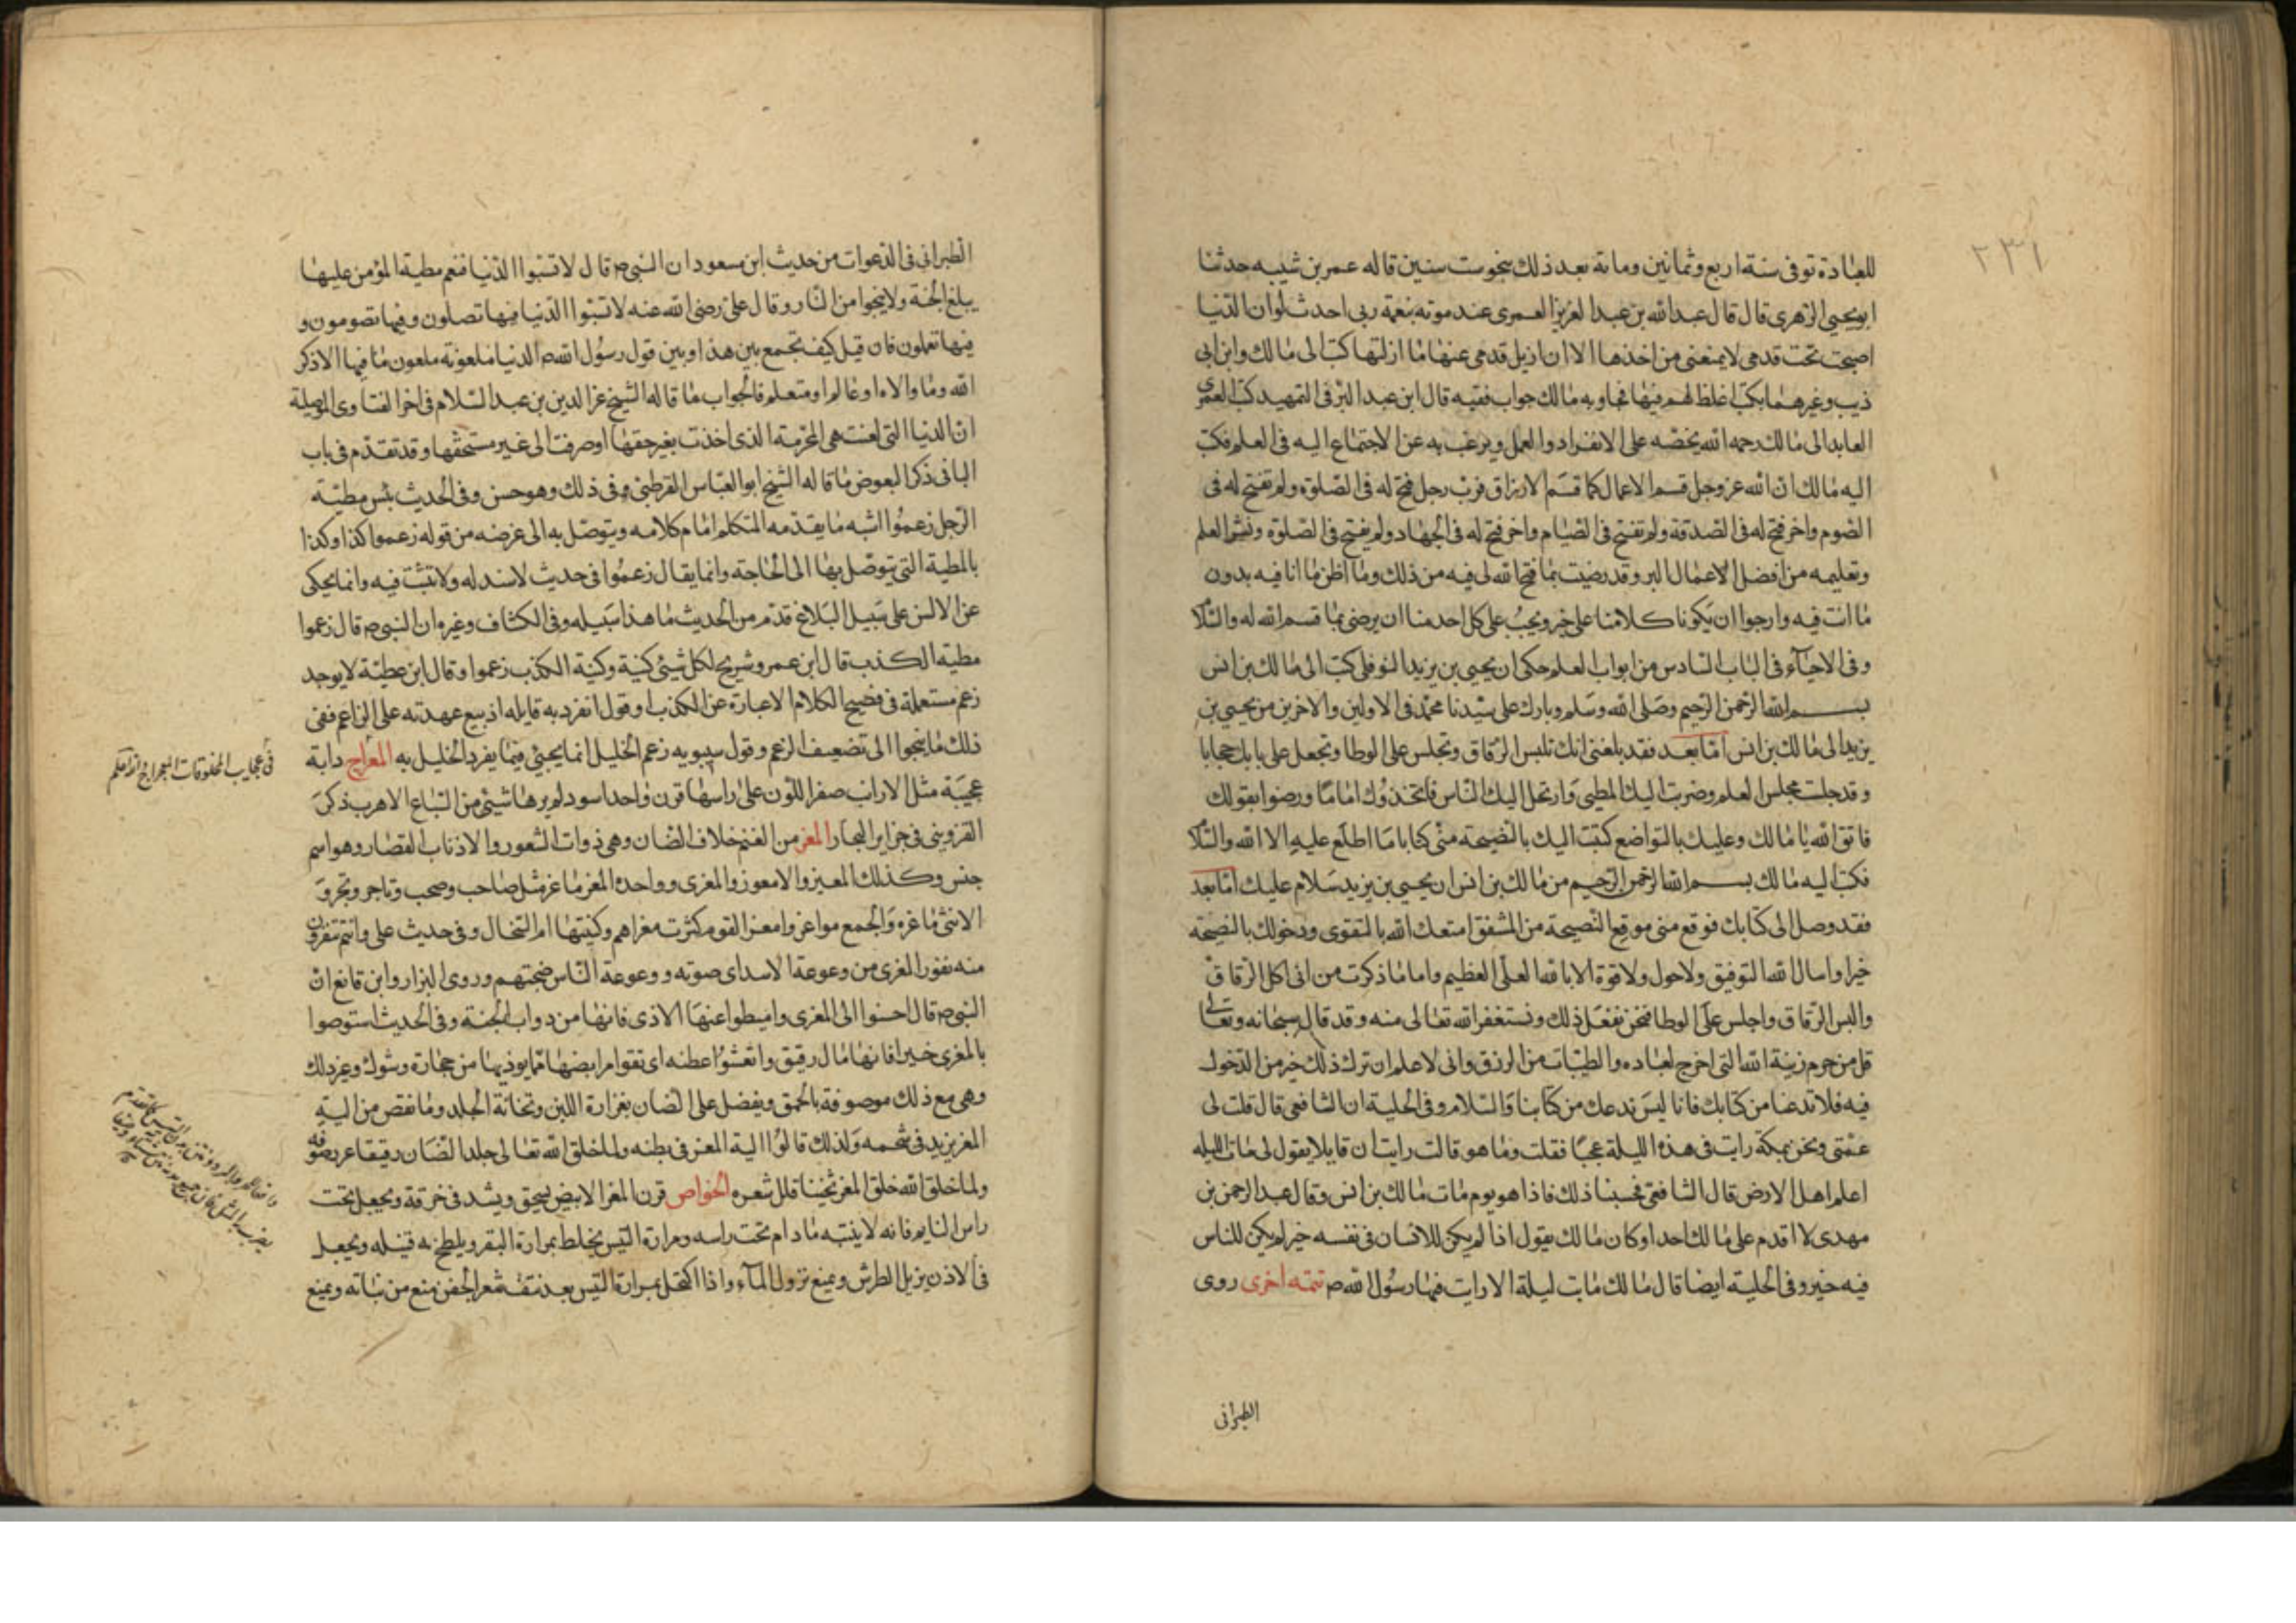 ٢٣١
للعبادة توفى سنة اربع وثمانين ومائة بعد ذلك بنحو ست سنين قاله عمر بن شيبه حدثنا
ابو يحيى الزهرى قال قال عبد الله بن عبد العزيز العمرى عند موته بنعمة ربى احدث لو ان الدنيا
اصبحت تحت قدمى لا يمنعنى من اخذها الا ان ازيل قدمى عنها ما ازلتها كتب الى مالك وابن ابى
ذيب وغيرهما بكتب اغلظ لهم فيها فجاوبه مالك جواب فقيه قال ابن عبد البر فى التمهيد كتب العمرى
العابد الى مالك رحمه الله يحضه على الانفراد والعمل ويرغب به عن الاجتماع اليه فى العلم فكتب
اليه مالك ان الله عز وجل قسم الاعمال كما قسم الارزاق فرب رجل فتح له فى الصلوة ولم تفتح له فى
الصوم واخر فتح له فى الصدقة ولم تفتح فى الصيام واخر فتح له فى الجهاد ولم يفتح فى الصلوة ونشر العلم
وتعليمه من افضل الاعمال البر وقد رضيت بما فتح الله لى فيه من ذلك وما اظن ما انا فيه بدون
ما انت فيه وارجوا ان يكونا كلانا على خير ويجب على كل احد منا ان يرضى بما قسم الله له والسلام
وفى الاحيآء فى الباب السادس من ابواب العلم حكى ان يحيى بن يزيد النوفلى كتب الى مالك بن انس
بسم الله الرحمن الرحيم وصلى الله وسلم وبارك على سيدنا محمد فى الاولين والاخرين من يحيى بن
يزيد الى مالك بن انس اما بعد فقد بلغنى انك تلبس الرقاق وتجلس على الوطا وتجعل على بابك حجابا
وقد جلست مجلس العلم وضربت اليك المطى وارتحل اليك الناس فاتخذوك اماما ورضوا بقولك
فاتق الله يا مالك وعليك بالتواضع كتبت اليك بالنصيحة منى كتابا ما اطلع عليه الا الله والسلام
فكتب اليه مالك بسم الله الرحمن الرحيم من مالك بن انس ان يحيى بن يزيد سلام عليك اما بعد
فقد وصل الى كتابك فوقع منى موقع النصيحة من المشفق امتعك الله بالتقوى ودخولك بالنصيحة
خيرا واسال الله التوفيق ولا حول ولا قوة الا بالله العلى العظيم واما ما ذكرت من انى اكل الرقاق
والبس الرقاق واجلس على الوطا فنحن نفعل ذلك ونستغفر الله تعالى منه وقد قال سبحانه وتعالى
قل من حرم زينة الله التى اخرج لعباده والطيبات من الرزق وانى لا علم ان ترك ذلك خير من الدخول
فيه فلا تدعنا من كتابك فانا ليس ندعك من كتابنا والسلام وفى الحلية ان الشافعى قال قلت لى
عمتى ونحن بمكة رايت فى هذه الليلة عجبا فقلت وما هو قالت رايت ان قايلا يقول لى مات الليلة
اعلم اهل الارض قال الشافعى فحسبنا ذلك فاذا هو يوم مات مالك بن انس وقال عبد الرحمن بن
مهدى لا اقدم على مالك احد او كان مالك يقول اذا لم يكن للانسان فى نفسه خير لم يكن للناس
فيه خير وفى الحلية ايضا قال مالك ما بت ليلة الا رايت فيها رسول الله ص تتمه اخرى روى
الطبرانى
الطبرانى فى الدعوات من حديث ابن مسعود ان النبى ص قال لا تسبوا الدنيا فنعم مطية المؤمن عليها
يبلغ الجنة ولا ينجوا من النار وقال على رضى الله عنه لا تسبوا الدنيا فيها تصلون وفيها تصومون و
فيها تعملون فان قيل كيف تجمع بين هذا وبين قول رسول الله ص الدنيا ملعونه ملعون ما فيها الا ذكر
الله وما والاه او عالم او متعلم فالجواب ما قاله الشيخ عز الدين بن عبد السلام فى اخر الفتاوى الموصلية
ان الدنيا التى لعنت هى المحرمة الذى اخذت بغير حقها او صرفت الى غير مستحقها وقد تقدم فى باب
البا فى ذكر البعوض ما قاله الشيخ ابو العباس القرطبى وفى ذلك وهو حسن وفى الحديث بئس مطية
الرجل زعموا شبه ما يقدمه المتكلم امام كلامه ويتوصل به الى غرضه من قوله زعموا كذا وكذا
بالمطية التى يتوصل بها الى الحاجة وانما يقال زعموا فى حديث لا سند له ولا تثبت فيه وانما يحكى
عن الالسن على سبيل البلاغ قدم من الحديث ما هذا سبيله وفى الكشاف وغيره ان النبى ص قال زعموا
مطية الكذب قال ابن عمر وشريح لكل شيئ كنية وكنية الكذب زعموا وقال ابن عطية لا يوجد
زعم مستعملة فى فصيح الكلام الا عبارة عن الكذب او قول انفرد به قايله اذ بيع عهدته على الزاعم ففى
ذلك ما ينجوا الى تضعيف الزعم وقول سيبويه زعم الخليل انما يجيئ فيما يفرد الخليل به المعراج دابة
عجيبة مثل الارانب صفر اللون على راسها قرن واحد اسود لم يرها شيئ من السباع الا هرب ذكره
القزوينى فى جزاير البحار المعز من الغنم خلاف الضان وهى ذوات الشعور والاذناب القصار وهو اسم
جنس وكذلك المعيز والامعوز والمعزى وواحد المعز ماعز مثل صاحب وصحب وتاجر وتجر و
الانثى ماعزه والجمع مواعز وامعز القوم كثرت معزاهم وكنيتها ام السخال وفى حديث على وانتم تنفرون
منه نفور المعزى من وعوعة الاسد اى صوته ووعوعة الناس ضجتهم وروى البزار وابن قانع ان
النبى ص قال احسنوا الى المعزى واميطوا عنها الاذى فانها من دواب الجنة وفى الحديث استوصوا
بالمعزى خيرا فانها مال رقيق وانقشوا عطنه اى نقوا مرابضها مما يوذيها من حجارة وشوك وغير ذلك
وهى مع ذلك موصوفة بالحمق ويفضل على الضان بغزارة اللبن وثخانة الجلد وما نقص من الية
المعز يزيد فى شحمه ولذلك قالوا الية المعز فى بطنه ولما خلق الله تعالى جلد الضان رقيقا غزر صوفه
ولما خلق الله خلق المعز ثخينا قلل شعره الخواص قرن المعز الابيض يسحق ويشد فى خرقة ويجعل تحت
راس النايم فانه لا ينتبه ما دام تحت راسه ومرارة التيس يخلط بمرارة البقر ويلطخ به فتيله ويجعل
فى الاذن يزيل الطرش ويمنع نزول المآء واذا اكتحل بمرارة التيس بعد نتف شعر الجفن منع من نباته ويمنع
فى عجايب المخلوقات المعراج والله اعلم